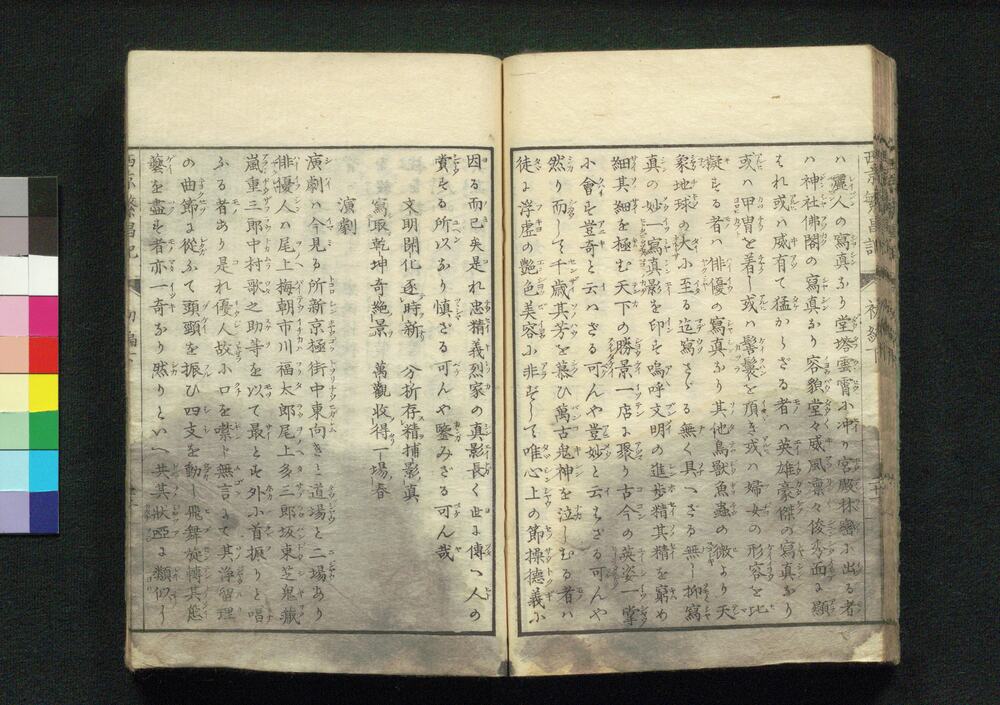 ハ麗人の寫真なり堂塔雲霄に冲り宮殿林巒に出る者
ハ神社佛閣の寫真なり容貌堂々威風凛々俊秀面に顯
はれ或ハ威有て猛からざる者ハ英雄豪傑の寫真なり
或ハ甲冑を着し或ハ鬢鬘を頂き或ハ婦女の形容を
擬する者ハ俳優の寫真なり其他鳥獣魚蟲の微より天
象地球の大に至る迄寫さゞる無く具へざる無し抑寫
真の妙一寫真影を印す嗚呼文明の進歩精其精を窮め
細其細を極む天下の勝景一店に聚り古今の英姿一掌
に會す豈奇と云はざる可んや豈妙と云はざる可んや
然り而して千歳其芳を慕ひ萬古鬼神を泣しむる者ハ
徒に浮虚の艶色美容に非ずして唯心上の節操德義に
因る而已矣是れ忠精義烈家の真影長く世に傳へ人の
賞する所以なり慎まざる可んや鑒みざる可ん哉
文明開化逐時新　分析存精捕影真
寫取乾坤奇絶景　萬觀收得一場春
演劇
演劇ハ今見る所新京極街中東向きと道場と二場あり
俳優人ハ尾上梅朝市川福太郎尾上多三郎坂東芝鬼藏
嵐重三郎中村歌之助等を以て最とす外に首振りと唱
ふる者あり是れ優人故に口を噤ト無言にて其浄瑠理
の曲節に從ふて頭頸を振ひ四支を動し飛舞旋轉其態
藝を盡す者亦一奇なり然りといへ共其狀啞に類似し
西京繁昌記
初編